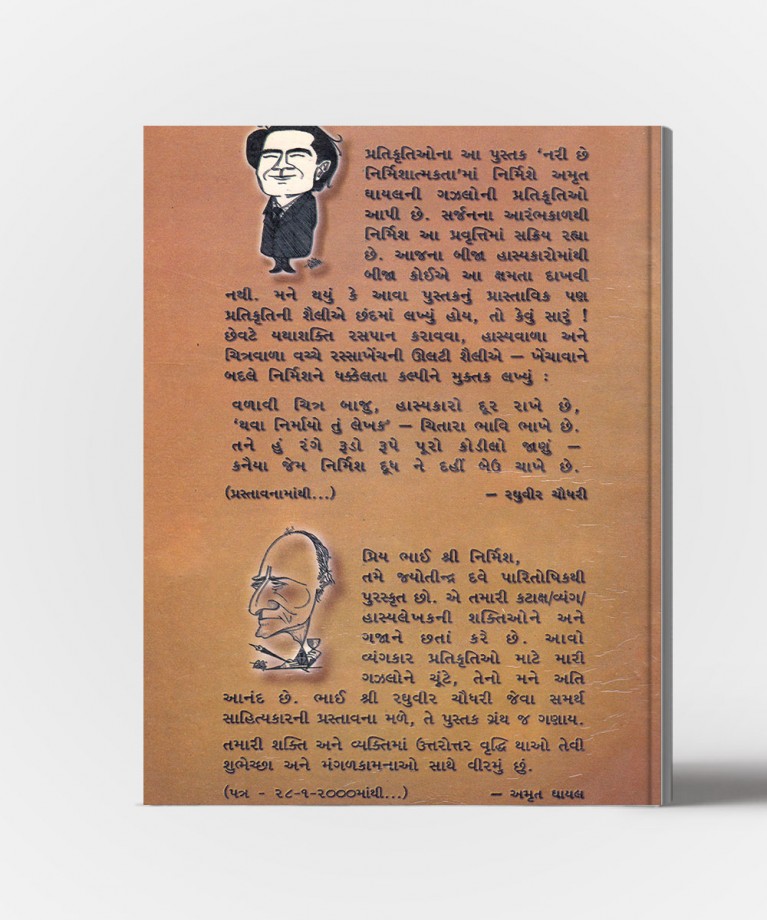 પ્રતિકૃતિઓના આ પુસ્તક ‘નરી છે
નિર્મિશાત્મકતા’માં નિર્મિશે અમૃત
ઘાયલની ગઝલોની પ્રતિકૃતિઓ
આપી છે. સર્જનના આરંભકાળથી
નિર્મિશ આ પ્રવૃત્તિમાં સક્રિય રહ્યા
છે. આજના બીજા હાસ્યકારોમાંથી
બીજા કોઈએ આ ક્ષમતા દાખવી
નથી. મને થયું કે આવા પુસ્તકનું પ્રાસ્તાવિક પણ
પ્રતિકૃતિની શૈલીએ છંદમાં લખ્યું હોય, તો કેવું સારું !
છેવટે યથાશક્તિ રસપાન કરાવવા, હાસ્યવાળા અને
ચિત્રવાળા વચ્ચે રસ્સાખેંચની ઊલટી શૈલીએ – ખેંચાવાને
બદલે નિર્મિશને ધક્કેલતા કલ્પીને મુક્તક લખ્યું :
વળાવી ચિત્ર બાજુ, હાસ્યકારો દૂર રાખે છે,
‘થવા નિર્માયો તું લેખક’ – ચિતારા ભાવિ ભાખે છે.
તને હું રંગે રૂડો રૂપે પૂરો કોડીલો જાણું –
કનૈયા જેમ નિર્મિશ દૂધ ને દહીં બેઉ ચાખે છે.
(પ્રસ્તાવનામાંથી...) – રઘુવીર ચૌધરી
પ્રિય ભાઈ શ્રી નિર્મિશ,
તમે જ્યોતીન્દ્ર દવે પારિતોષિકથી
પુરસ્કૃત છો. એ તમારી કટાક્ષ/વ્યંગ/
હાસ્યલેખકની શક્તિઓને અને
ગજાને છતાં કરે છે. આવો
વ્યંગકાર પ્રતિકૃતિઓ માટે મારી
ગઝલોને ચૂંટે, તેનો મને અતિ
આનંદ છે. ભાઈ શ્રી રઘુવીર ચૌધરી જેવા સમર્થ
સાહિત્યકારની પ્રસ્તાવના મળે, તે પુસ્તક ગ્રંથ જ ગણાય.
તમારી શક્તિ અને વ્યક્તિમાં ઉત્તરોત્તર વૃદ્ધિ થાઓ તેવી
શુભેચ્છા અને મંગળકામનાઓ સાથે વીરમું છું.
(પત્ર - ૨૮-૧-૨૦૦૦માંથી...) – અમૃત ઘાયલ